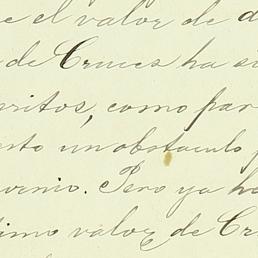 e el valor de d
de Cruces ha si
ritos, como par
nto un obstaculo p
vernio. Pero ya ha
timo valor de Cr